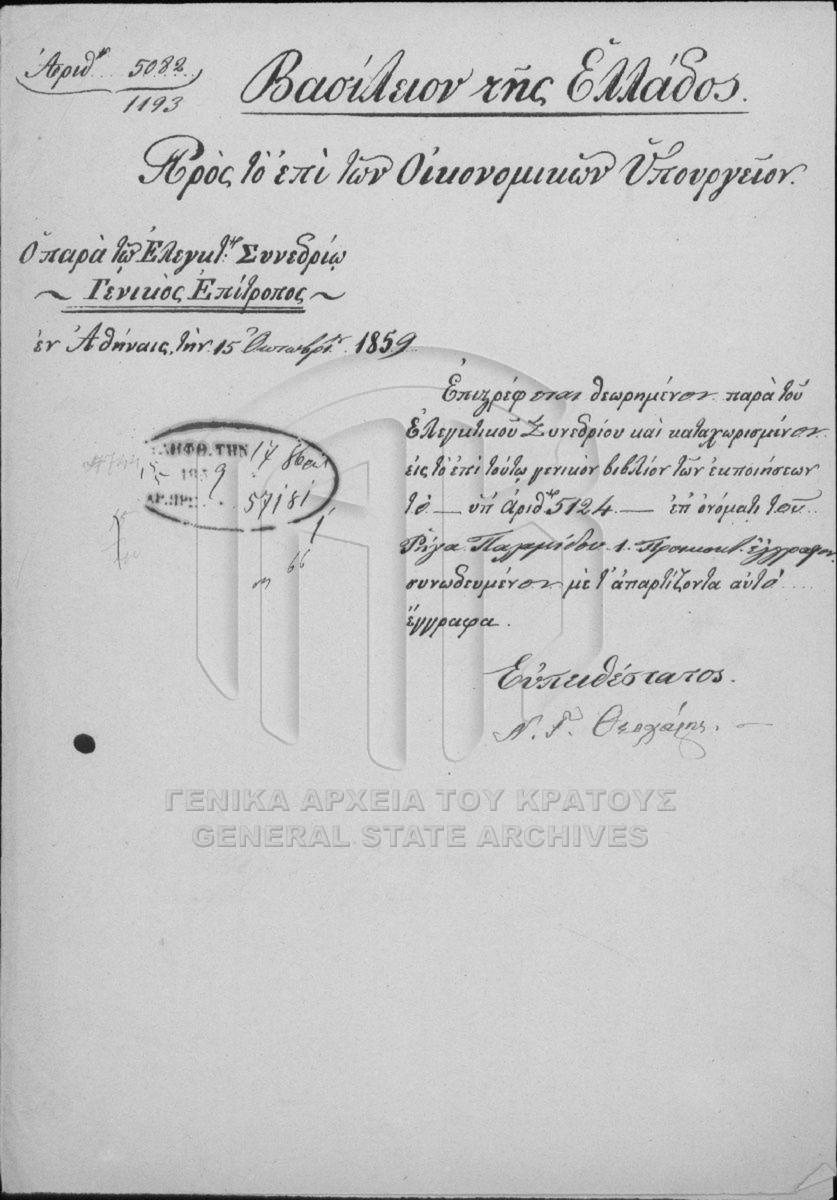 Ἀριθ. 5082
1193
Βασίλειον τῆς Ἑλλάδος.
Πρὸς τὸ ἐπὶ τῶν Οἰκονομικῶν Ὑπουργεῖον.
Ὁ παρὰ τῷ Ἐλεγκτ. Συνεδρίῳ
~ Γενικὸς Ἐπίτροπος ~
ἐν Ἀθήναις, τὴν 15 Ὀκτωβρ. 1859
Ἐπιστρέφεται θεωρημένον παρὰ τοῦ
Ἐλεγκτικοῦ Συνεδρίου καὶ καταχωρισμένον
εἰς τὸ ἐπὶ τούτῳ γενικὸν βιβλίον τῶν ἐκποιήσεων
τὸ — ὑπ' ἀριθ. 5124 — ἐπ' ὀνόματι τοῦ
Ῥήγα Παλαμίδου 1. Προικοδ. ἔγγραφον
συνωδευμένον μὲ τ' ἀπαρτίζοντα αὐτὸ
ἔγγραφα.
Εὐπειθέστατος.
Ν. Γ. Θεοχάρης.
ΛΗΦΘ. ΤΗΝ 17
185 9
ΑΡ. ΠΡ. 57181
66
ΓΕΝΙΚΑ ΑΡΧΕΙΑ ΤΟΥ ΚΡΑΤΟΥΣ
GENERAL STATE ARCHIVES